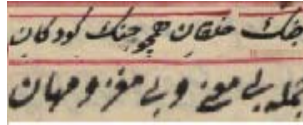 جنک خلقان همچو جنک کودکان
جمله بی معنی و بی مغز و مهان